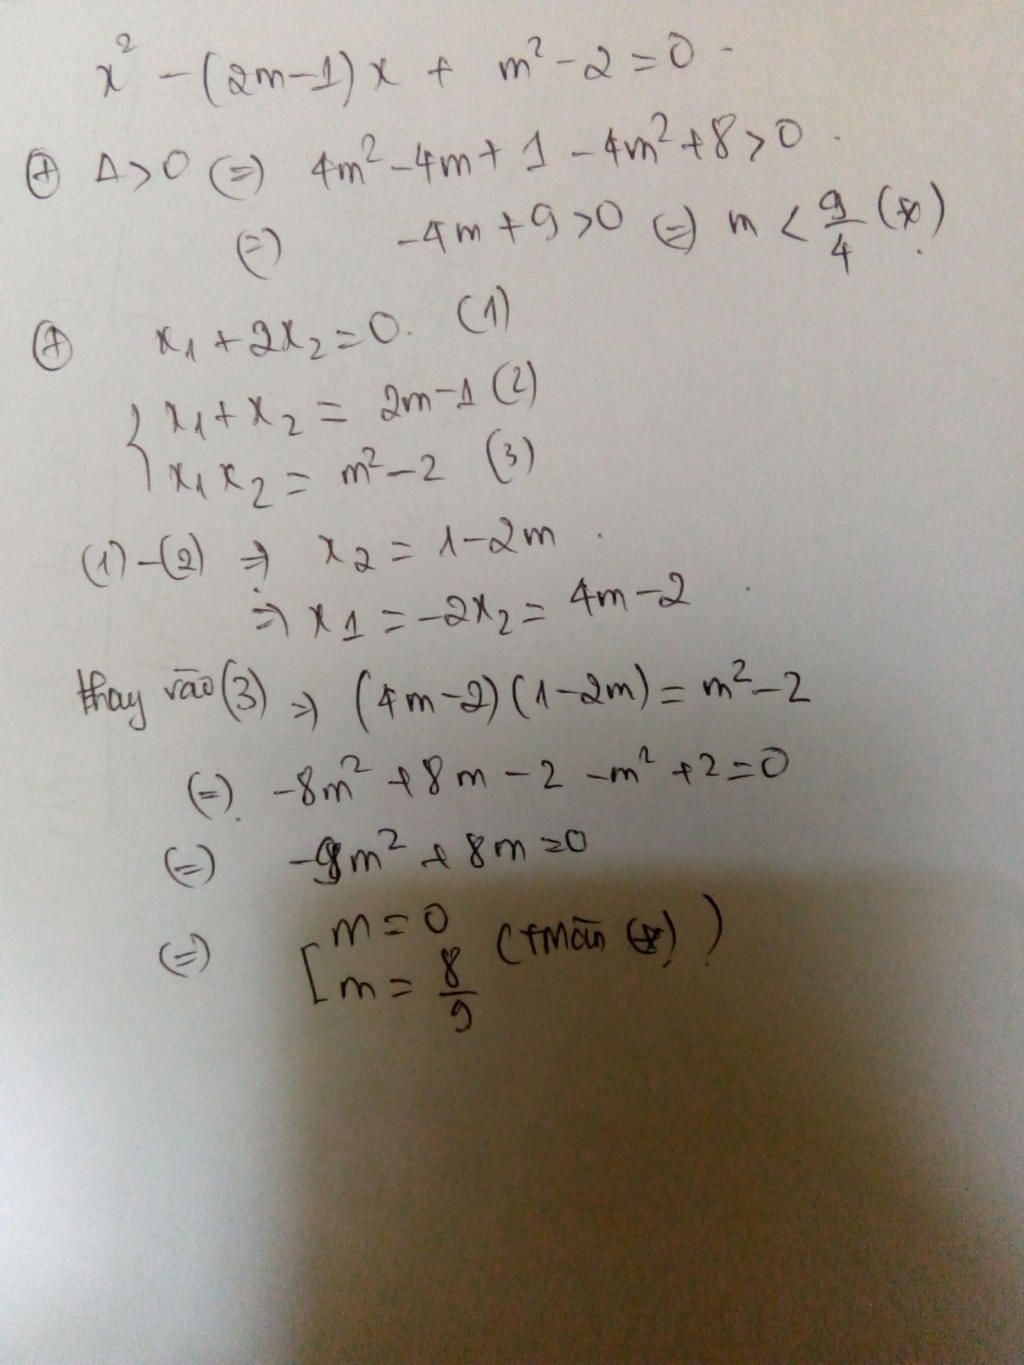 x² - (2m-1)x + m² - 2 = 0
⊕ Δ > 0 (=) 4m² - 4m + 1 - 4m² + 8 > 0
(=) -4m + 9 > 0 (=) m < 9/4 (*)
⊕ x₁ + 2x₂ = 0. (1)
{ x₁ + x₂ = 2m-1 (2)
x₁ x₂ = m² - 2 (3)
(1) - (2) => x₂ = 1 - 2m
=> x₁ = -2x₂ = 4m - 2
thay vào (3) => (4m-2)(1-2m) = m² - 2
(=) -8m² + 8m - 2 - m² + 2 = 0
(=) -9m² + 8m = 0
(=) [ m = 0
m = 8/9 (t/mãn (*))